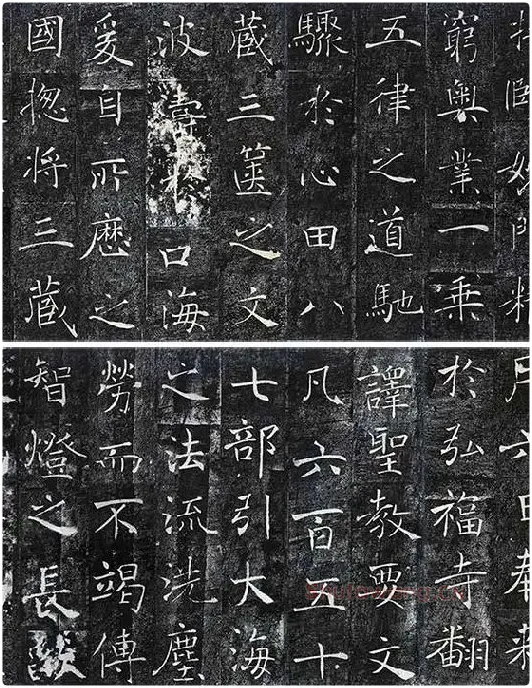 窮奧業一乘
五律之道馳
驟於心田八
藏三篋之文
波濤於口海
爰自所歷之
國揔將三藏
於弘福寺翻
譯聖教要文
凡六百五十
七部引大海
之法流洗塵
勞而不竭傳
智燈之長焰